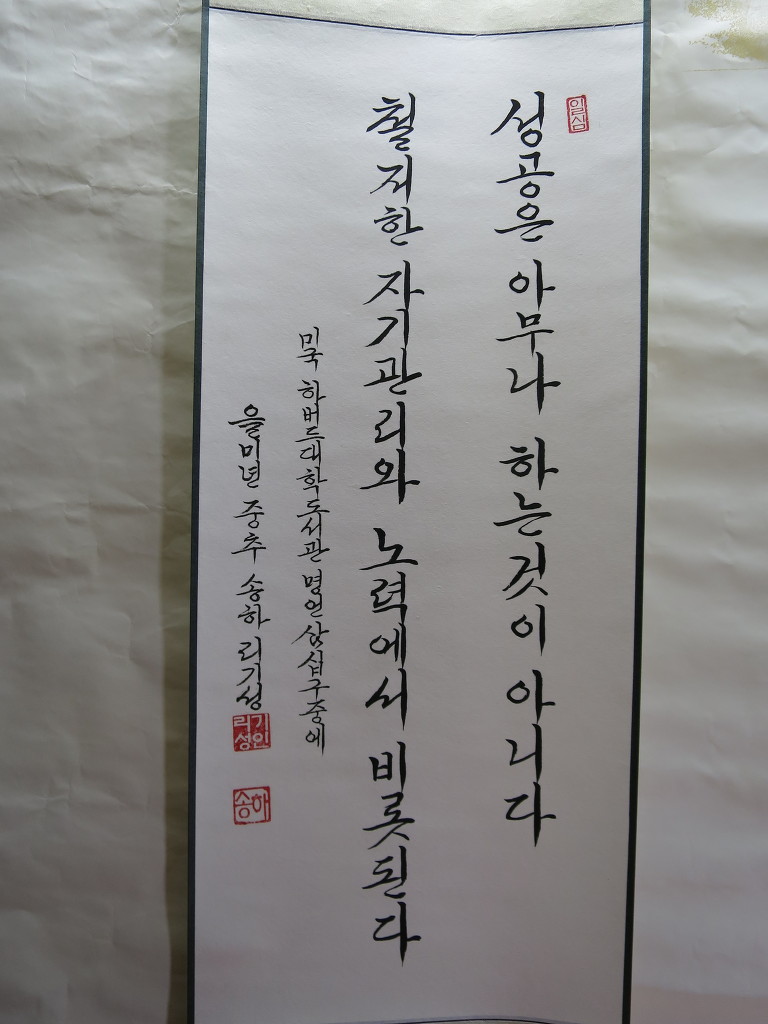 일심
성공은 아무나 하는것이 아니다
철저한 자기관리와 노력에서 비롯된다
미국 하버드대학도서관 명언 삼십구중에
을미년 중추 송하 리기성
리기성인
송하